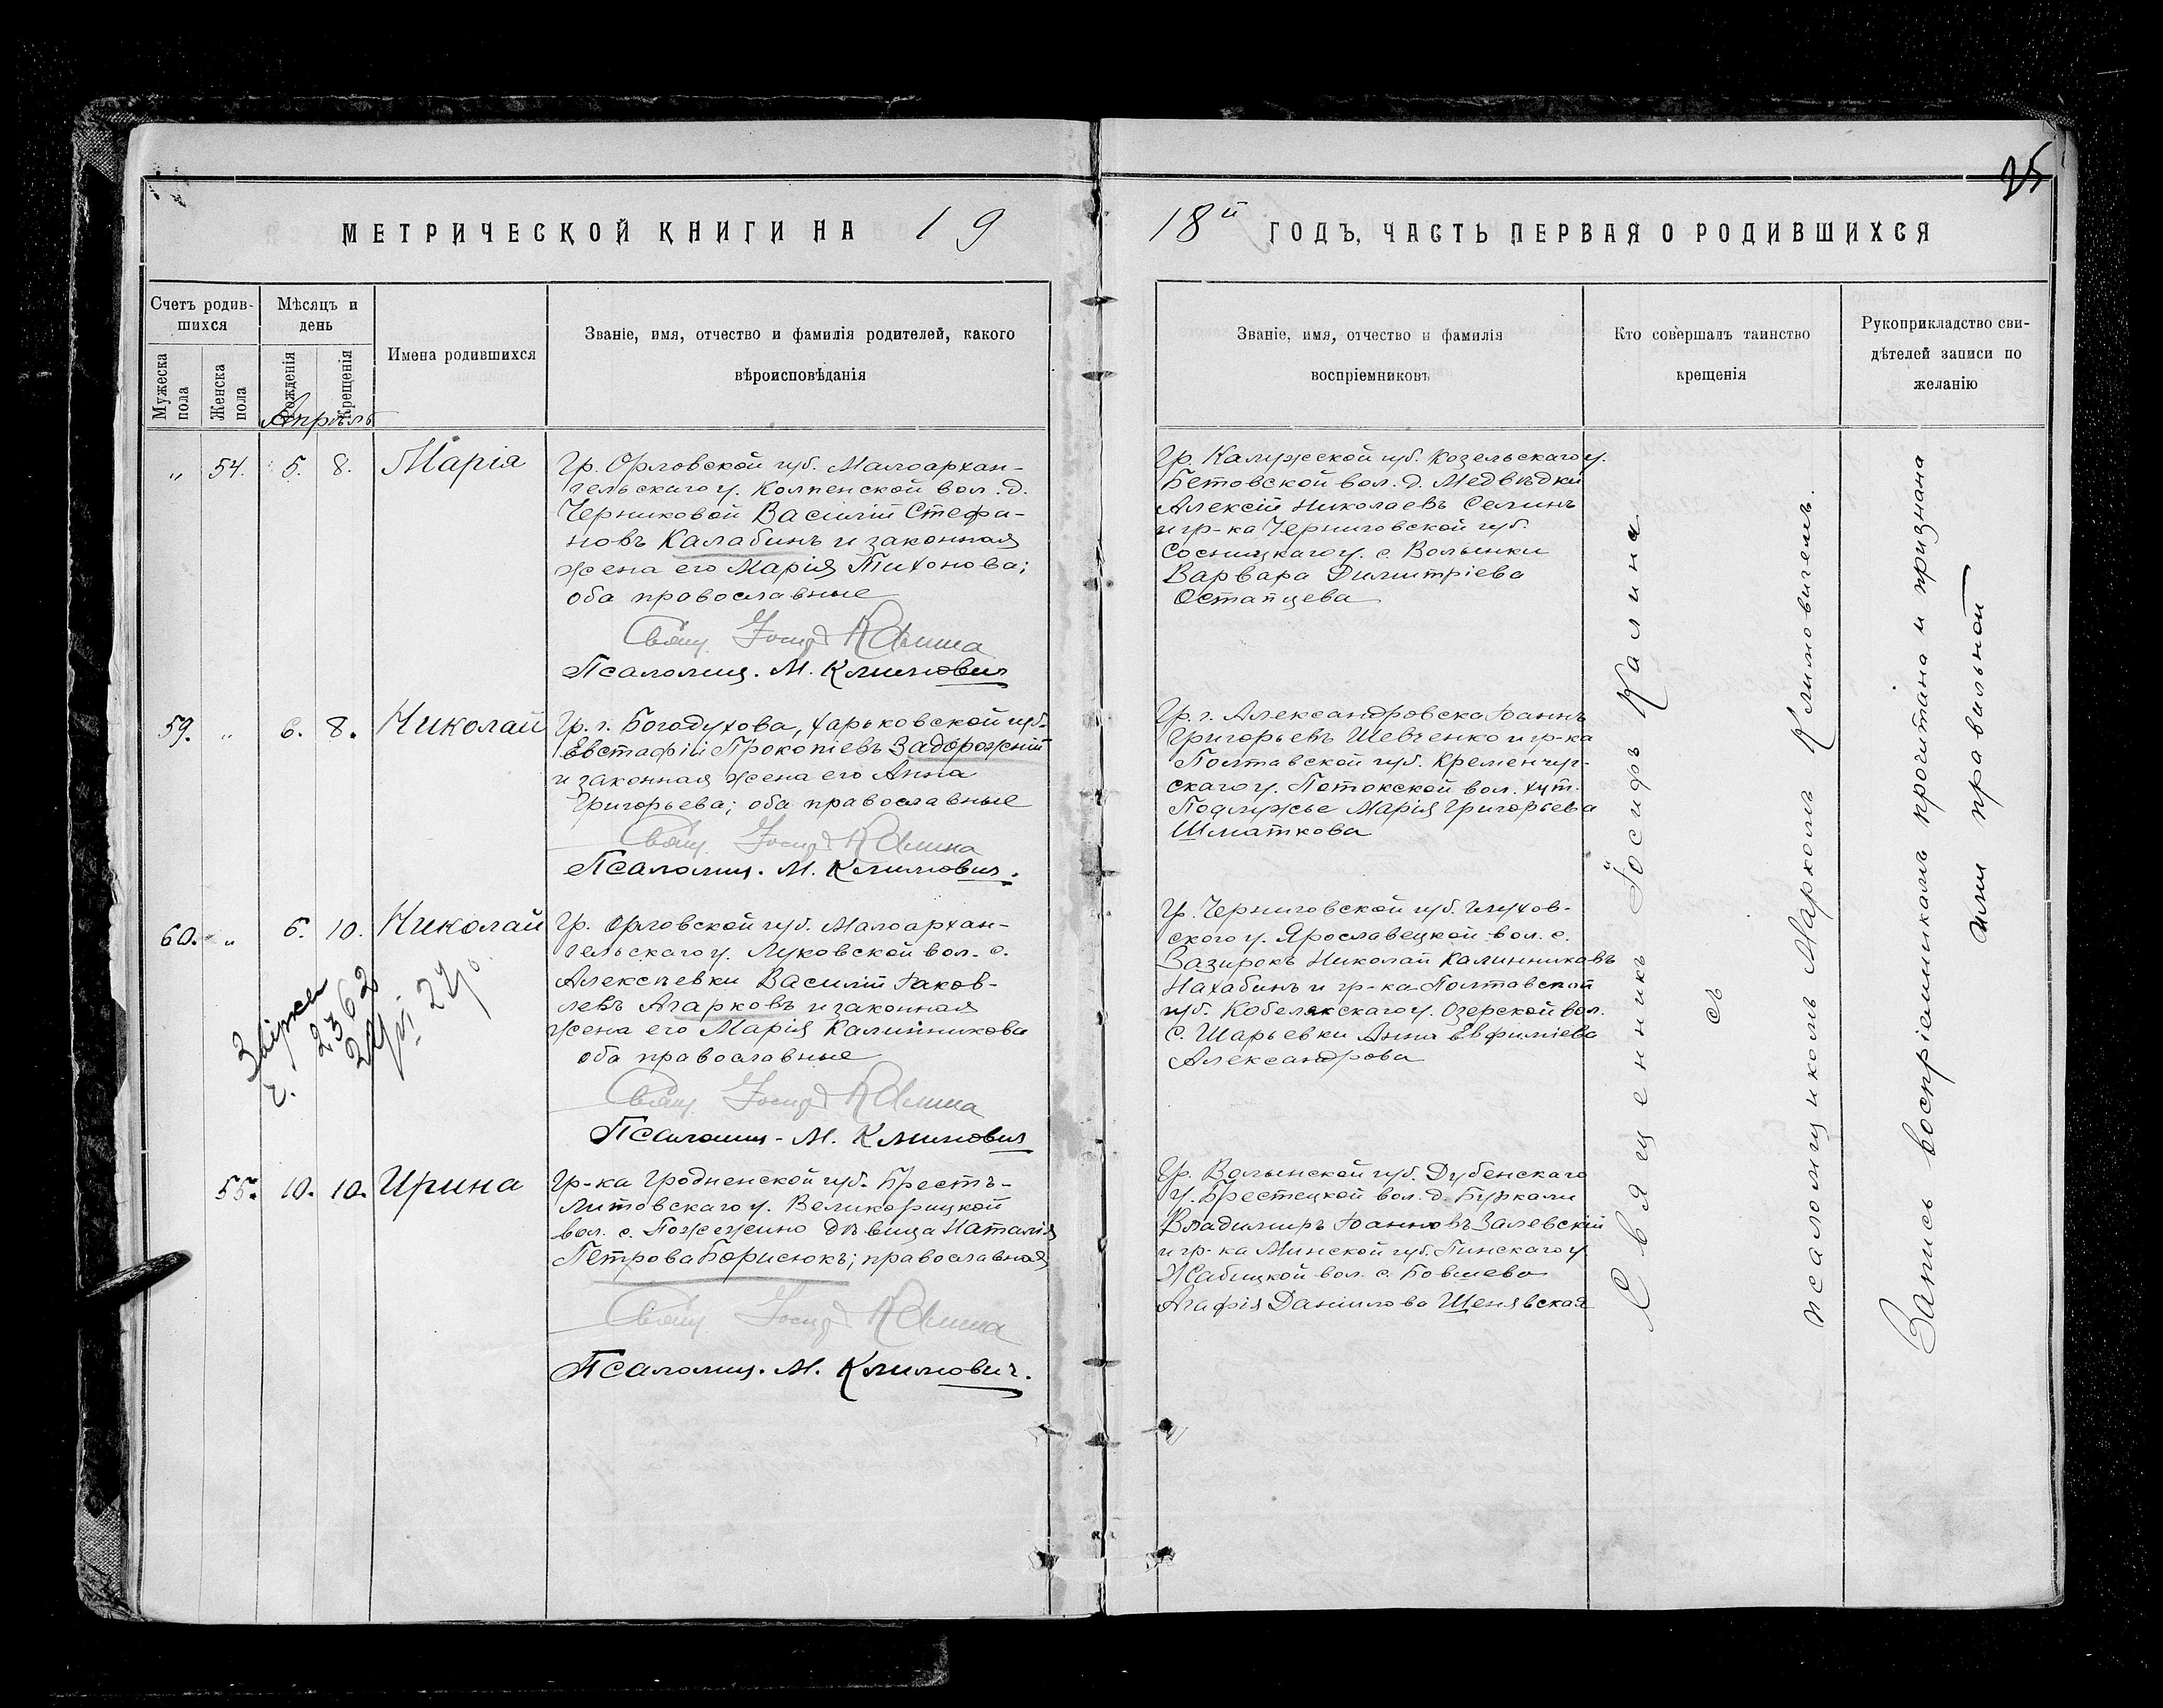 25
МЕТРИЧЕСКОЙ КНИГИ НА 19
18й ГОДЪ, ЧАСТЬ ПЕРВАЯ О РОДИВШИХСЯ
Счетъ родив-
шихся
Мужеска
пола
Женска
пола
Мѣсяцъ и
день
Рожденія
Крещенія
Имена родившихся
Званіе, имя, отчество и фамилія родителей, какого
вѣроисповѣданія
Званіе, имя, отчество и фамилія
воспріемниковъ
Кто совершалъ таинство
крещенія
Рукоприкладство сви-
дѣтелей записи по
желанію
Апрѣль
„ 54. 5. 8. Марія
Гр. Орловской губ. Малоархан-
гельскаго у. Колпенской вол. д.
Черниковой Василій Стефа-
новъ Калабинъ и законная
жена его Марія Тихонова;
оба православные
Свящ. Іосифъ Калина
Псаломщ. М. Климович
Гр. Калужской губ. Козельскаго у.
Бетовской вол. д. Медвѣдки
Алексій Николаевъ Селинъ
и гр-ка Черниговской губ.
Сосницкаго у. с. Волынки
Варвара Димитріева
Остапцева
59. „ 6. 8. Николай
Гр. г. Богодухова, Харьковской губ.
Евстафій Прокопіевъ Задорожній
и законная жена его Анна
Григорьева; оба православные
Свящ. Іосифъ Калина
Псаломщ. М. Климович.
Гр. г. Александровска Іоаннъ
Григорьевъ Шевченко и гр-ка
Полтавской губ. Кременчуг-
скаго у. Потокской вол. хут.
Подлужье Марія Григорьева
Шматкова
60. „ 6. 10. Николай
Гр. Орловской губ. Малоархан-
гельскаго у. Луковской вол. с.
Алексѣевки Василій Іаков-
левъ Агарковъ и законная
жена его Марія Калинникова
оба православные
Свящ. Іосифъ Калина
Псаломщ. М. Климович
2362
Гр. Черниговской губ. Глухов-
ского у. Ярославецкой вол. с.
Зазирокъ Николай Калинниковъ
Нахабинъ и гр-ка Полтавской
губ. Кобелякскаго у. Озерской вол.
с. Шарьевки Анна Евфиміева
Александрова
55. 10. 10. Ирина
Гр-ка Гродненской губ. Брестъ-
Литовскаго у. Великорицкой
вол. с. Пожежино дѣвица Наталія
Петрова Борисюкъ; православная
Свящ. Іосифъ Калина
Псаломщ. М. Климович.
Гр. Волынской губ. Дубенскаго
у. Брестецкой вол. д.
Владимиръ Іоанновъ Залевскій
и гр-ка Минской губ. Пинскаго у.
Жабицкой вол. с.
Агафія Даніилова Шенявская
Священникъ Іосифъ Калина
съ
псаломщикомъ Маркомъ Климовичемъ.
Запись воспріемниками прочитана и признана
ими правильной